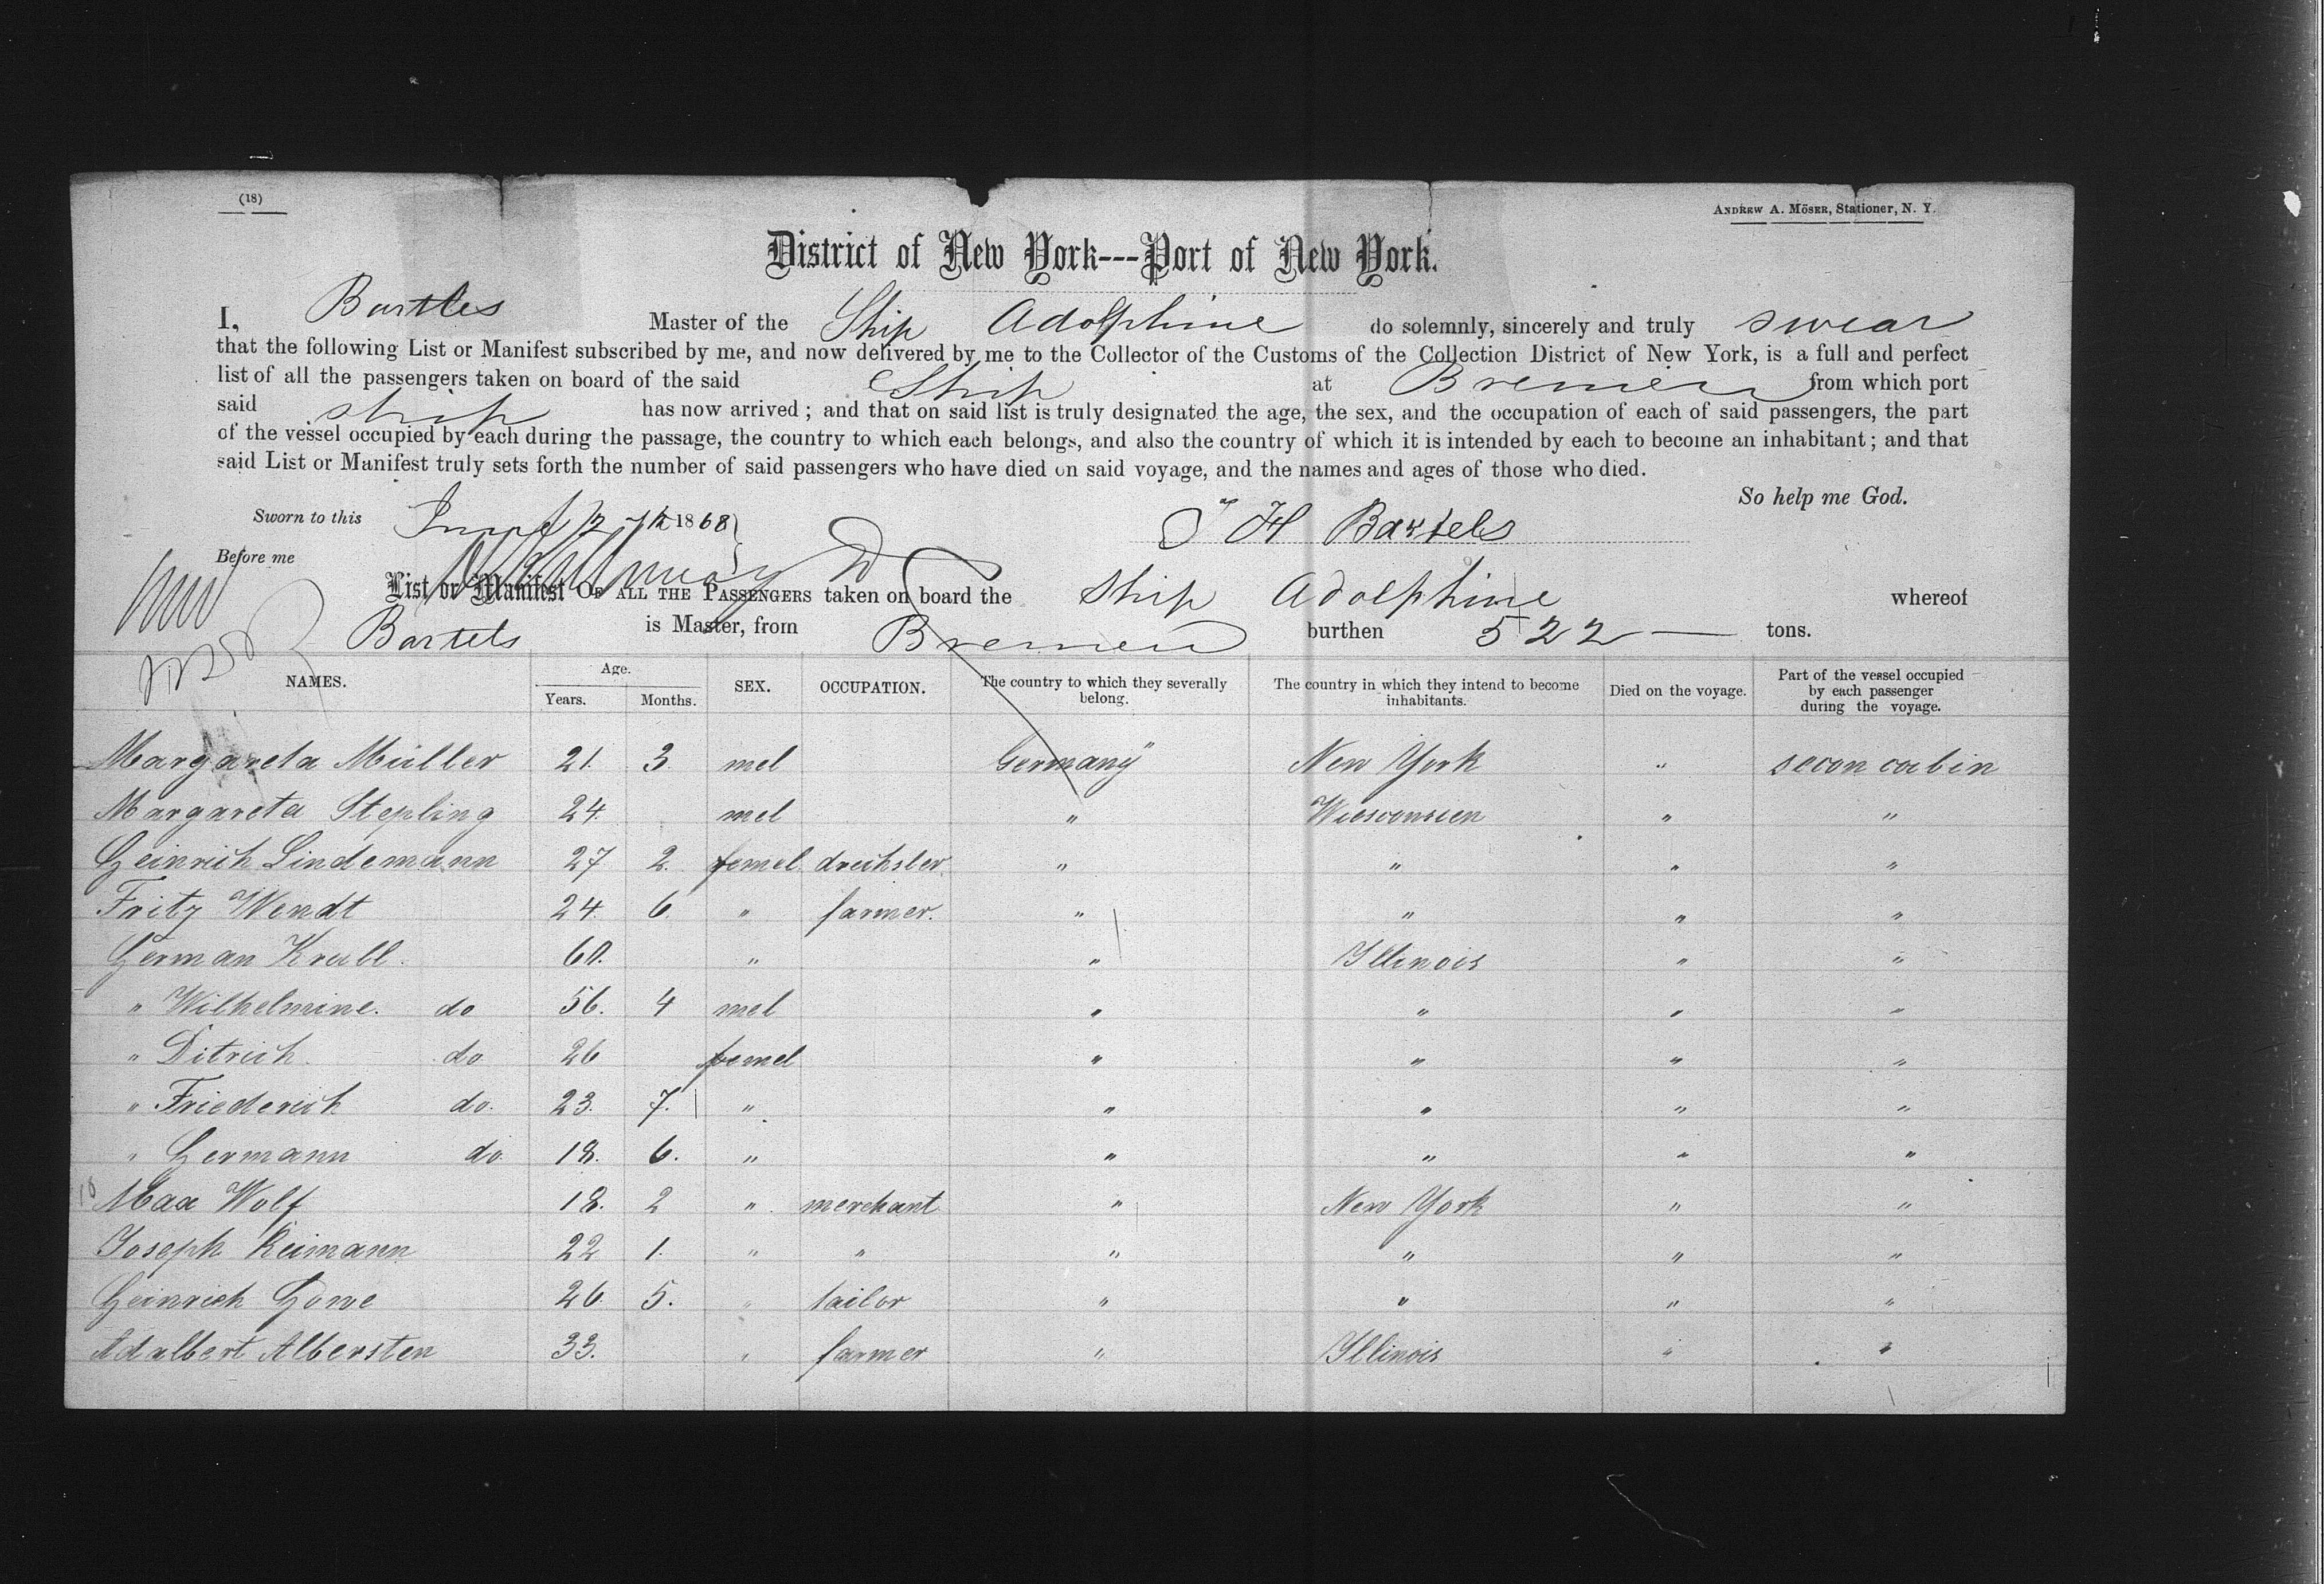 (18)
ANDREW A. MÖSER, Stationer, N. Y.
District of New York---Port of New York.
I, Bartles Master of the Ship Adolphine do solemnly, sincerely and truly swear
that the following List or Manifest subscribed by me, and now delivered by me to the Collector of the Customs of the Collection District of New York, is a full and perfect
list of all the passengers taken on board of the said Ship at Bremen from which port
said ship has now arrived ; and that on said list is truly designated the age, the sex, and the occupation of each of said passengers, the part
of the vessel occupied by each during the passage, the country to which each belongs, and also the country of which it is intended by each to become an inhabitant ; and that
said List or Manifest truly sets forth the number of said passengers who have died on said voyage, and the names and ages of those who died.
So help me God.
Sworn to this June 12th 1868
H Bartels
Before me
List or Manifest OF ALL THE PASSENGERS taken on board the ship Adolphine whereof
Bartels is Master, from Bremen burthen 522 — tons.
NAMES. Age. Years. Months. SEX. OCCUPATION. The country to which they severally belong. The country in which they intend to become inhabitants. Died on the voyage. Part of the vessel occupied by each passenger during the voyage.
Margareta Müller 21. 3 mel Germany New York " secon cabin
Margareta Stepling 24. mel " Wiesconsien " "
Heinrich Lindemann 27 2. femel drechsler " " " "
Fritz Wendt 24. 6 " farmer. " " " "
Herman Krull. 60. " " Illinois " "
" Wilhelmine. do 56. 4 mel " " " "
" Ditrich. do 26 femel " " " "
" Friederich do. 23. 7. " " " " "
" Hermann do 18. 6. " " " " "
Max Wolf 18. 2 " merchant " New York " "
Joseph Reimann 22 1. " " " " " "
Heinrich Howe 26. 5. " tailor " " " "
Adalbert Albersten 33. " farmer " Illinois " "